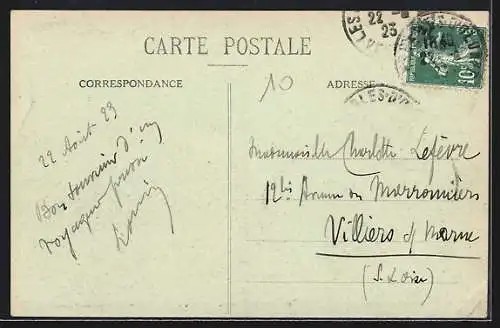 CARTE POSTALE
CORRESPONDANCE
ADRESSE
10
22 Août 23
Bon souvenir d'un
voyageur
Louis
Mademoiselle Charlotte Lefèvre
12bis Avenue des Marronniers
Villiers s/ Marne
(S. & Oise)
22
23
10c